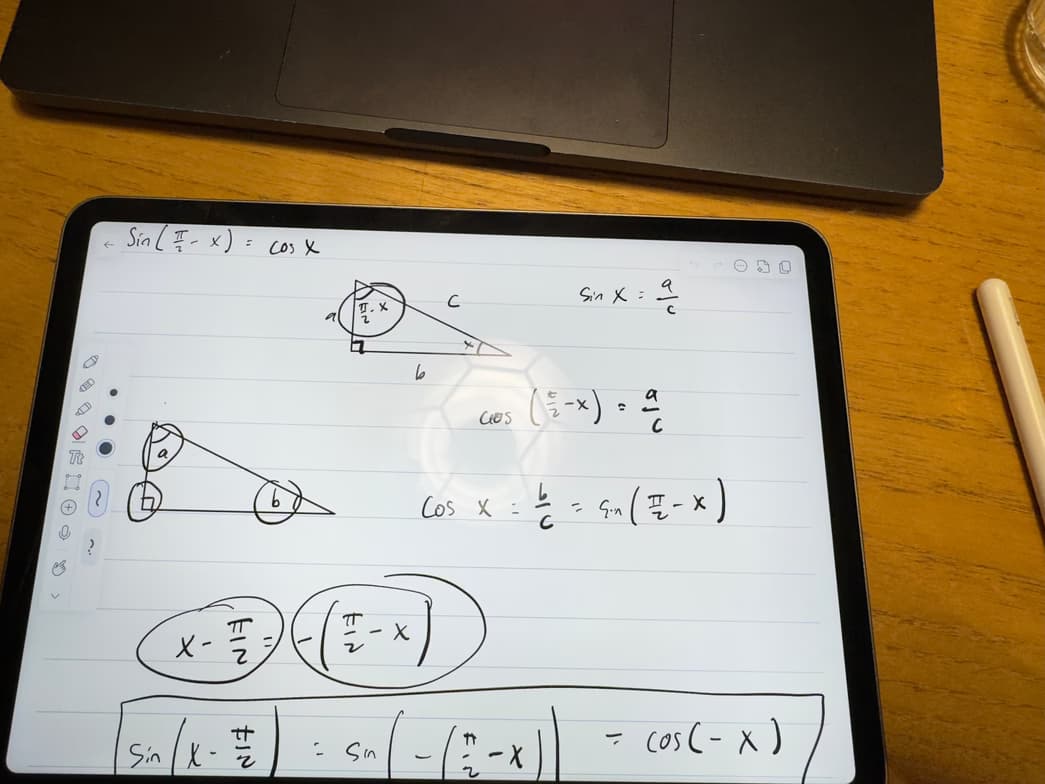 Sin(π/2 - x) = cos x
a
π/2 - x
c
x
b
sin x = a/c
cos (π/2 - x) = a/c
a
b
cos x = b/c = sin(π/2 - x)
x - π/2 = -(π/2 - x)
sin(x - π/2) = sin(-(π/2 - x)) = cos(-x)
Tt